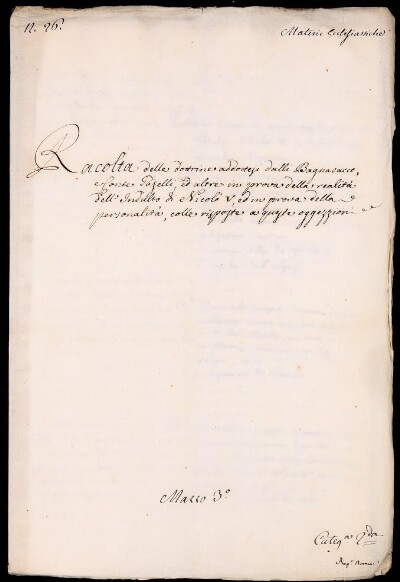 n. 26.
Materie Ecclesiastiche
Racolta delle dotrine addottesi dalli Bagnasacco,
e Conte Pazelli, ed altre in prova della realità
dell'Indulto di Nicolò V, ed in prova della
personalità, colle risposte a queste oggezzioni
Mazzo 3°
Categ.